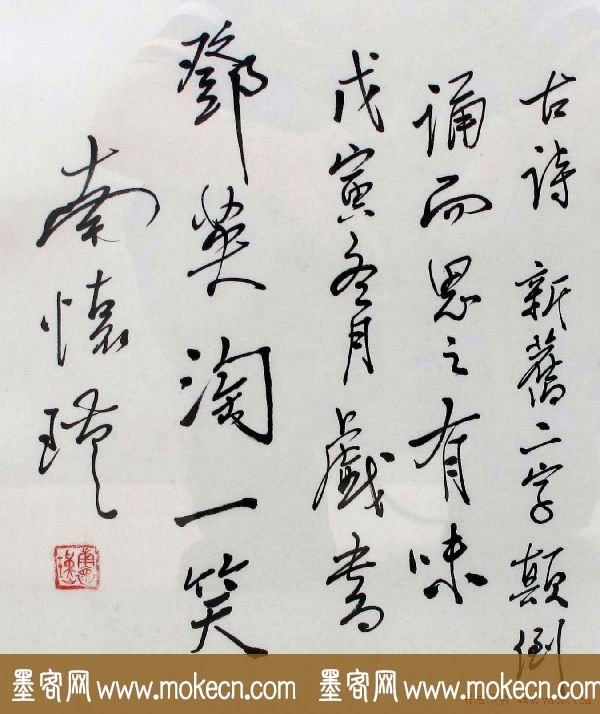 古詩 新舊二字顛倒
誦而思之有味
戊寅冬月戲書
鄧英淘一笑
南懷瑾
墨客网 www.mokecn.com 墨客网 www.mokecn.com